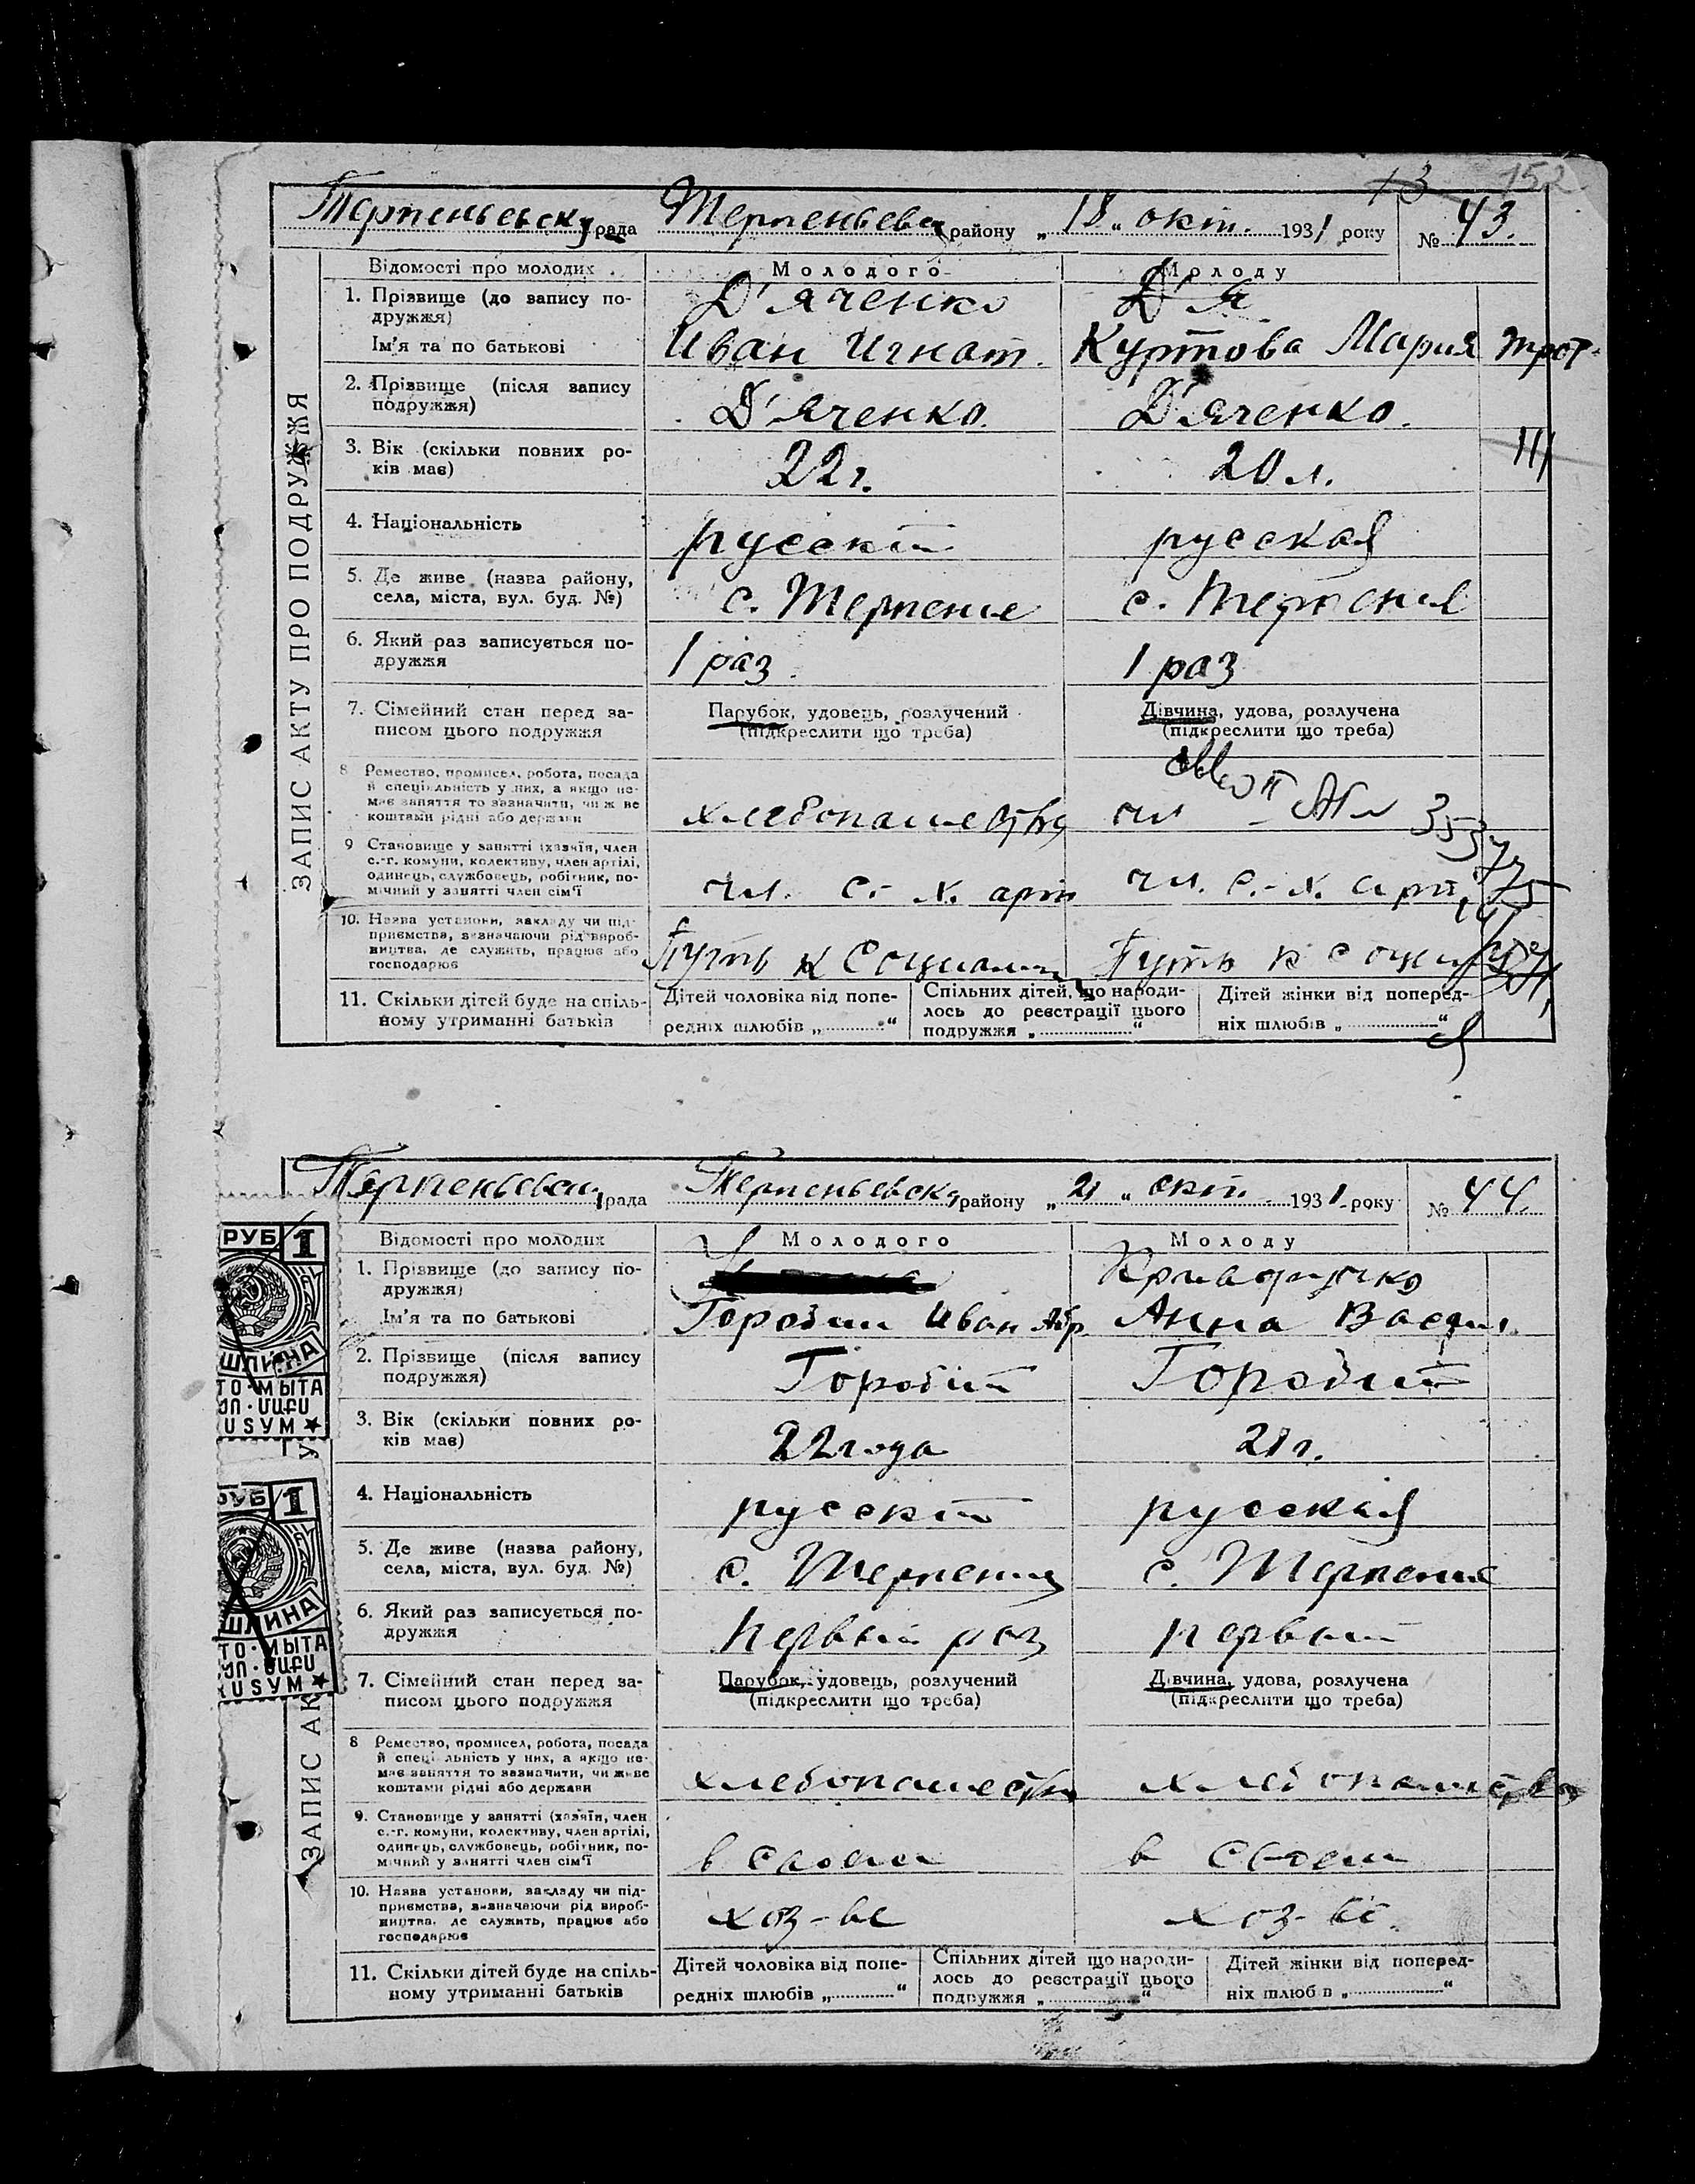 13 152
Терпеньевск рада Терпеньевск району „18„ окт. 1931 року № 43.
ЗАПИС АКТУ ПРО ПОДРУЖЖЯ
Відомості про молодих Молодого Молоду
1. Прізвище (до запису по-
дружжя) Д'яченко Д'я
Ім'я та по батькові Иван Игнат. Куртова Мария
2. Прізвище (після запису
подружжя) Д'яченко. Д'яченко.
3. Вік (скільки повних ро-
ків має) 22 г. 20 л.
4. Національність русский русская
5. Де живе (назва району,
села, міста, вул. буд. №) с. Терпение с. Терпения
6. Який раз записується по-
дружжя 1 раз. 1 раз
7. Сімейний стан перед за-
писом цього подружжя
Парубок, удовець, розлучений
(підкреслити що треба)
Дівчина, удова, розлучена
(підкреслити що треба)
8 Ремество, промисел, робота, посада
й спеціяльність у них, а якщо не-
має заняття то зазначити, чи ж ве
коштами рідні або держави хлебопашество
9 Становище у занятті (хазяїн, член
с.-г. комуни, колективу, член артілі,
одинець, службовець, робітник, по-
мічний у занятті член сім'ї чл. с.-х. арт чл. с.-х. арт.
10. Назва установи, закладу чи під-
приємства, визначаючи рід вироб-
ництва, де служить, працює або
господарює Путь к Социализ Путь к социа
11. Скільки дітей буде на спіль-
ному утриманні батьків
Дітей чоловіка від попе-
редніх шлюбів „ “
Спільних дітей, що народи-
лось до реєстрації цього
подружжя „ “
Дітей жінки від поперед-
ніх шлюбів „ “
Терпеньевск рада Терпеньевск району „21„ окт. 1931 року № 44.
РУБ 1
ШЛИНА
ТО·МЫТА
USУM
РУБ 1
ШЛИНА
ТО·МЫТА
USУM
ЗАПИС АК
Відомості про молодих Молодого Молоду
1. Прізвище (до запису по-
дружжя) Криворучко
Ім'я та по батькові Горобий Иван Абр. Анна Васил.
2. Прізвище (після запису
подружжя) Горобий Горобий
3. Вік (скільки повних ро-
ків має) 22 года 21 г.
4. Національність русский русская
5. Де живе (назва району,
села, міста, вул. буд. №) с. Терпения с. Терпение
6. Який раз записується по-
дружжя Первый раз первый
7. Сімейний стан перед за-
писом цього подружжя
Парубок, удовець, розлучений
(підкреслити що треба)
Дівчина, удова, розлучена
(підкреслити що треба)
8 Ремество, промисел, робота, посада
й спеціяльність у них, а якщо не-
має заняття то зазначити, чи живе
коштами рідні або держави хлебопашество хлебопашество
9. Становище у занятті (хазяїн, член
с.-г. комуни, колективу, член артілі,
одинець, службовець, робітник, по-
мічний у занятті член сім'ї в своем в своем
10. Назва установи, закладу чи під-
приємства, визначаючи рід вироб-
ництва, де служить, працює або
господарює хоз-ве хоз-ве.
11. Скільки дітей буде на спіль-
ному утриманні батьків
Дітей чоловіка від попе-
редніх шлюбів „ “
Спільних дітей що народи-
лось до реєстрації цього
подружжя „ “
Дітей жінки від поперед-
ніх шлюбів „ “